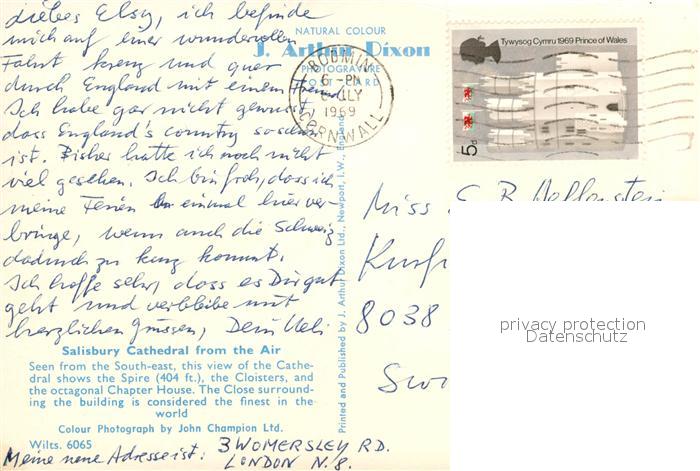 liebes Elsy, ich befinde
mich auf einer wundervollen
Fahrt kreuz und quer
durch England mit einem Freund.
Ich habe gar nicht gewusst,
dass England's country so schön
ist. Bisher hatte ich noch nicht
viel gesehen. Ich bin froh, dass ich
meine Ferien einmal hier ver-
bringe, wenn auch die Schweiz
dadurch zu kurz kommt.
Ich hoffe sehr, dass es Dir gut
geht und verbleibe mit
herzlichen Grüssen, Dein Ueli
NATURAL COLOUR
J. Arthur Dixon
PHOTOGRAVURE
POST CARD
BODMIN
6 - PM
JLY
1969
CORNWALL
Tywysog Cymru 1969 Prince of Wales
5d
Printed and Published by J. Arthur Dixon Ltd., Newport, I.W., England
Miss
8038
privacy protection
Datenschutz
Salisbury Cathedral from the Air
Seen from the South-east, this view of the Cathe-
dral shows the Spire (404 ft.), the Cloisters, and
the octagonal Chapter House. The Close surround-
ing the building is considered the finest in the
world
Colour Photograph by John Champion Ltd.
Wilts. 6065
Meine neue Adresse ist: 3 WOMERSLEY RD.
LONDON N.8.